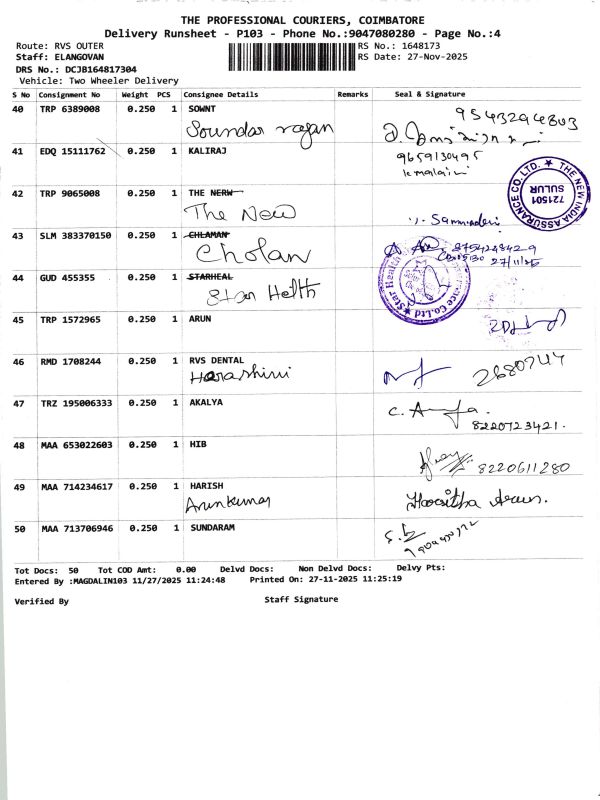 THE PROFESSIONAL COURIERS, COIMBATORE
Delivery Runsheet - P103 - Phone No.:9047080280 - Page No.:4
Route: RVS OUTER
RS No.: 1648173
Staff: ELANGOVAN
RS Date: 27-Nov-2025
DRS No.: DCJB164817304
Vehicle: Two Wheeler Delivery
S No Consignment No Weight PCS Consignee Details Remarks Seal & Signature
40 TRP 6389008 0.250 1 SOWNT
Soundar rajan
9543294803
41 EDQ 15111762 0.250 1 KALIRAJ
9659130495
42 TRP 9065008 0.250 1 THE NERW
The New
THE NEW INDIA ASSURANCE CO. LTD.
721501
SULUR
43 SLM 383370150 0.250 1 CHLAMAN
Cholan
8754234429
27/11/25
44 GUD 455355 0.250 1 STARHEAL
Star Helth
Star Health
Co.Ltd
45 TRP 1572965 0.250 1 ARUN
46 RMD 1708244 0.250 1 RVS DENTAL
Harashini
2680744
47 TRZ 195006333 0.250 1 AKALYA
8220723421.
48 MAA 653022603 0.250 1 HIB
8220611280
49 MAA 714234617 0.250 1 HARISH
Arunkumar
50 MAA 713706946 0.250 1 SUNDARAM
Tot Docs: 50 Tot COD Amt: 0.00 Delvd Docs: Non Delvd Docs: Delvy Pts:
Entered By :MAGDALIN103 11/27/2025 11:24:48 Printed On: 27-11-2025 11:25:19
Verified By Staff Signature